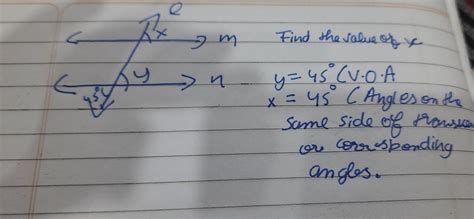 l
x
m
Find the value of x
y
n
45°
y = 45° (V.O.A
x = 45° (Angles on the
same side of
or corresponding
angles.